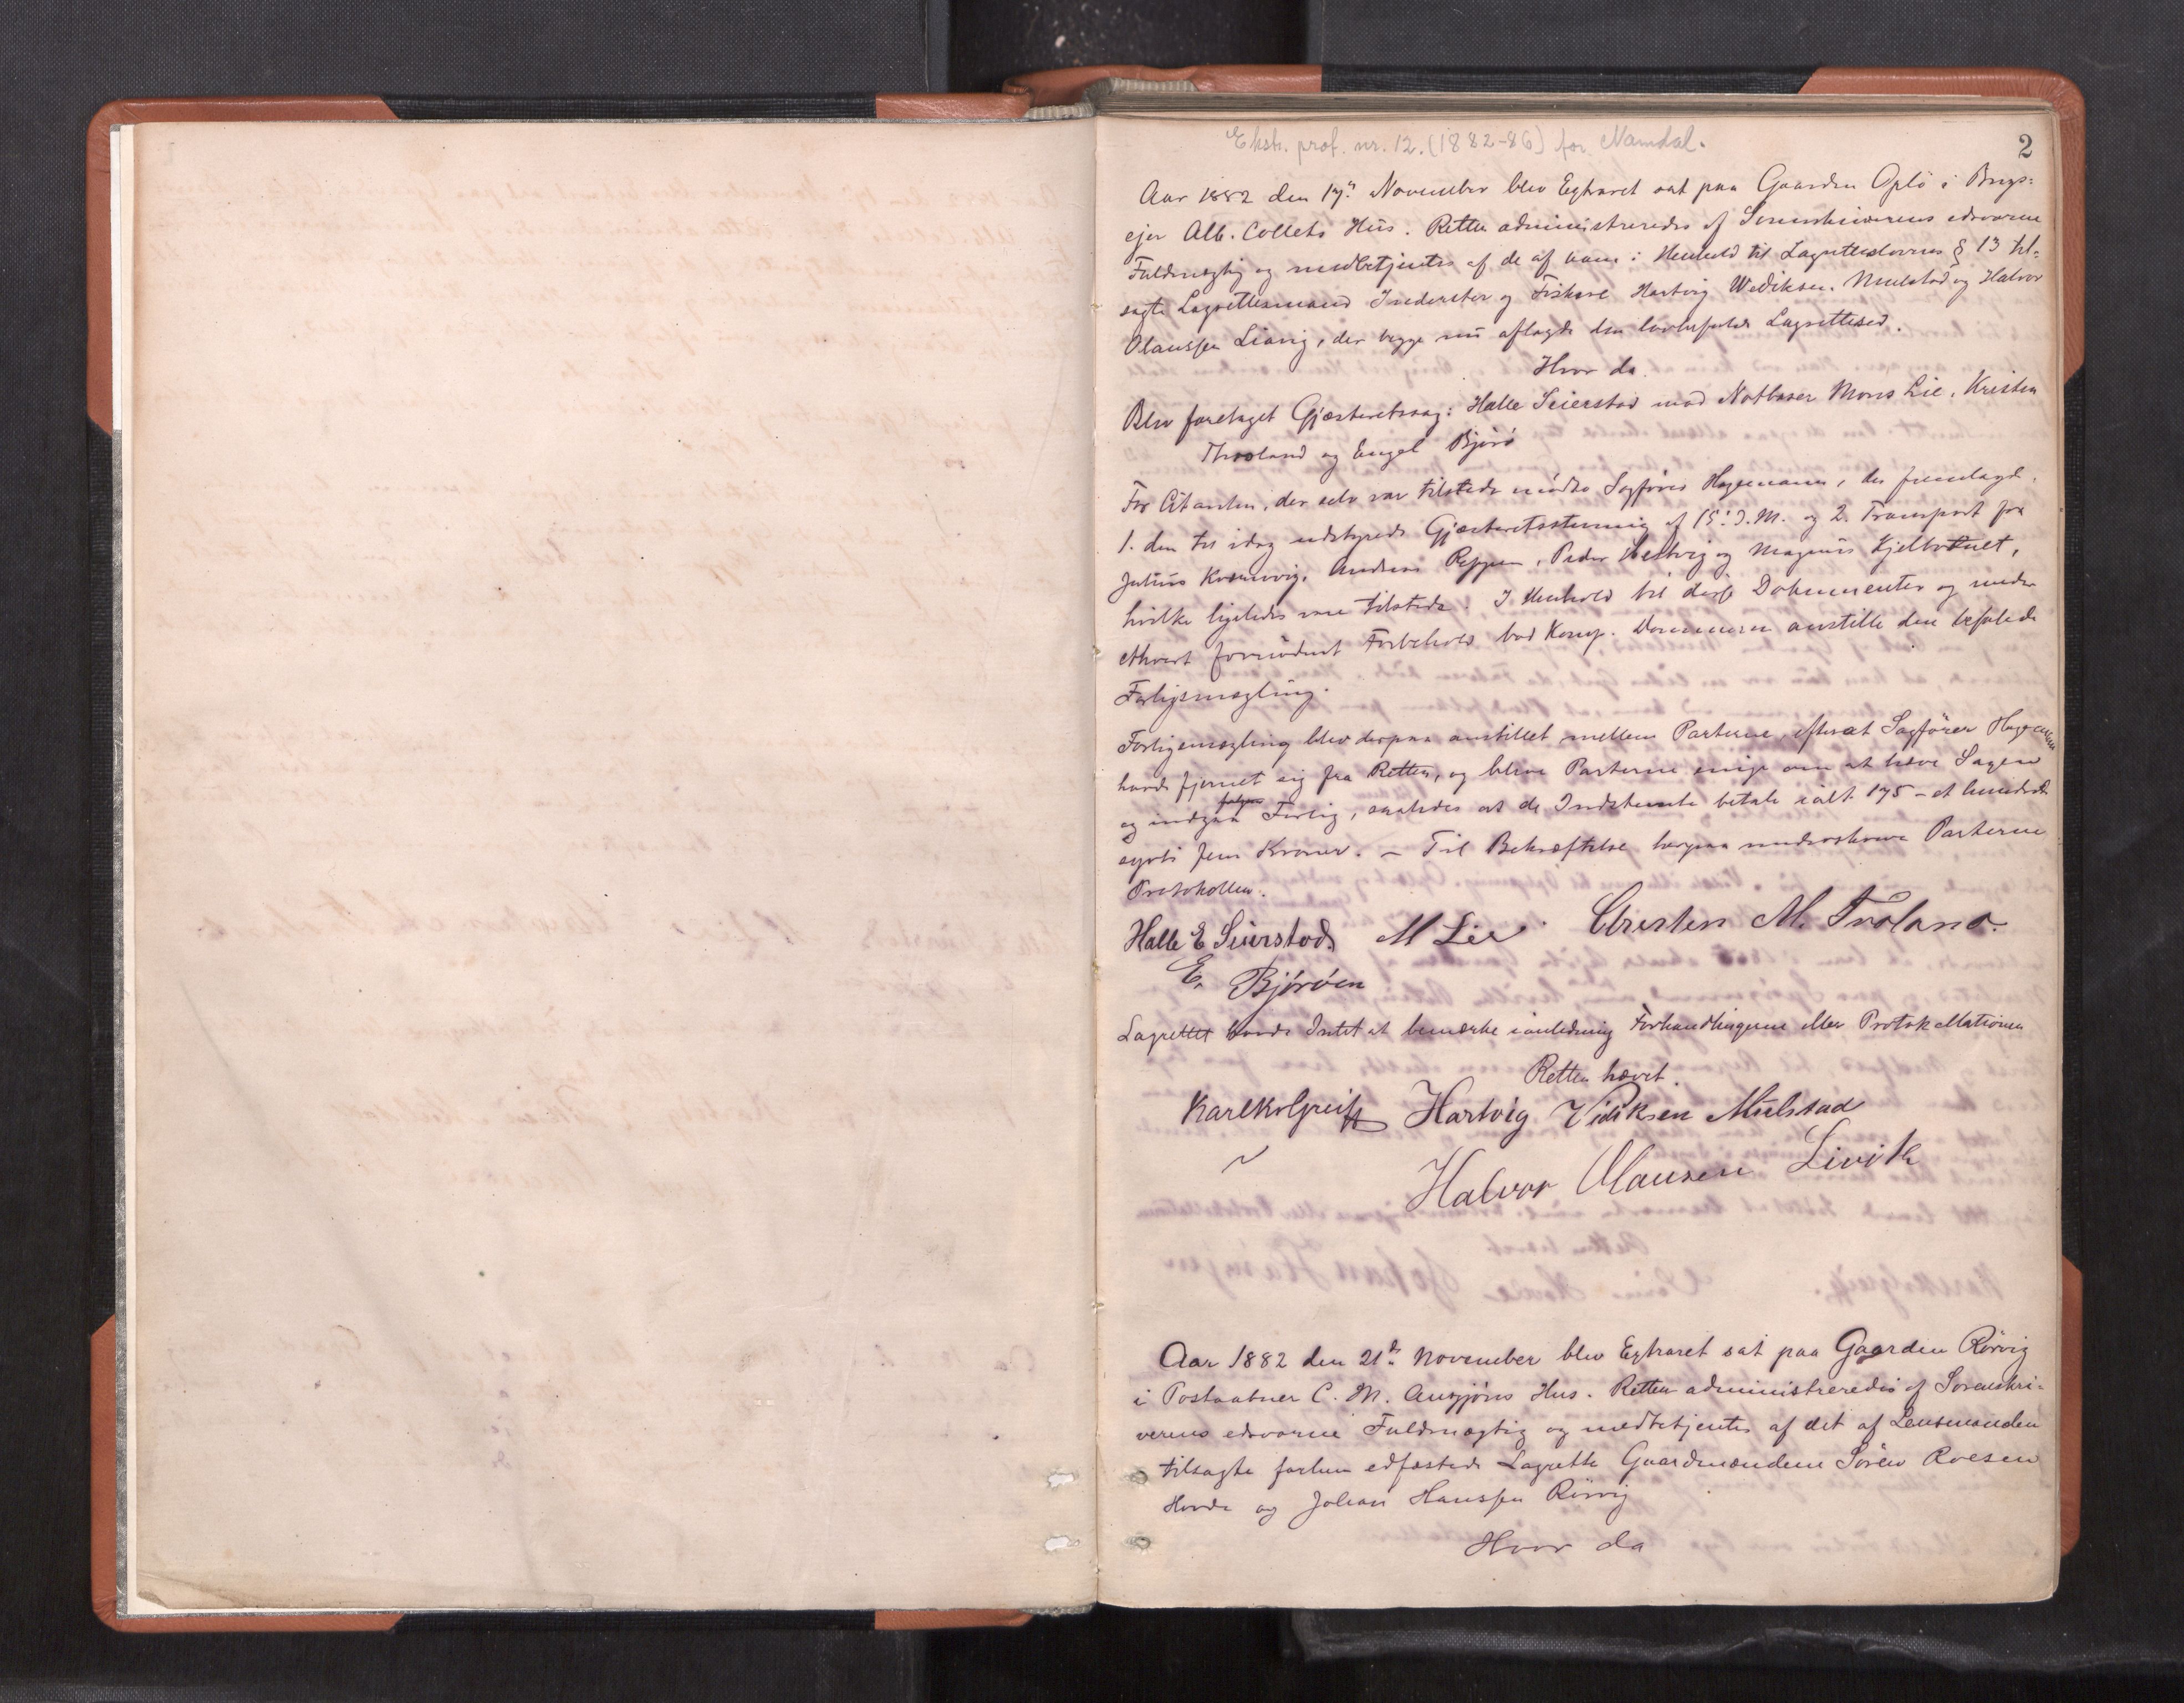 Ekstr. prot. nr. 12. (1882-86) for Namdal.
2
Aar 1882 den 17de November blev Extraret sat paa Gaarden Oplö i Brugs-
ejer Alb. Collets Hus. Retten administreredes af Sorenskriverens edsvorne
Fuldmægtig og medbetjentes af de af ham i Henhold til Lagrettelovens § 13 til-
sagte Lagrettesmænd Inderster og Fiskere Hartvig Wediksen Mulstad og Halvor
Olaussen Liavig, der begge nu aflagde den lovbefalede Lagretteed.
Hvor da
Blev foretaget Gjæsteretssag: Halle Seierstad mod Notbaser Mons Lie, Kristen
Throland og Engel Bjørø
For Citanten, der selv var tilstede mødte Sagfører Hagemann, der fremlagde
1. den til idag udstyrede Gjæsteretsstevning af 15de d.M. og 2. Transport fra
Julius Andreas Reppen, Peder og Magnus Kjelbotnet,
hvilke ligeledes vare tilstede. I Henhold til disse Dokumenter og under
ethvert fornødent Forbehold bad Komp. Dommeren anstille den befalede
Forligsmægling.
Forligsmægling blev derpaa anstillet mellem Parterne, efterat Sagfører Hagemann
havde fjernet sig fra Retten, og bleve Parterne enige om at hæve Sagen
og indgaa følgende Forlig, saaledes at de Indstevnte betale ialt 175 – et hundrede
sytti fem Kroner. – Til Bekræftelse herpaa underskrive Parterne
Protokollen.
Halle E Seierstad. M Lie Christen M. Troland.
E. Bjørøen
Lagrettet havde Intet at bemærke ianledning Forhandlingerne eller Protokollationen
Retten hævet.
Karl Kolgreiff Hartvig Vediksen Mulstad
Halvor Olausen Livik
Aar 1882 den 21de November blev Extraret sat paa Gaarden Rörvig
i Postaabner C. M. Ansjøns Hus. Retten administreredes af Sorenskri-
verens edsvorne Fuldmægtig og medbetjentes af det af Lensmanden
tilsagte forhen edfæstede Lagrette Gaardmændene Sören Roesen
Hovde og Johan Hanssen Rörvig
Hvor da